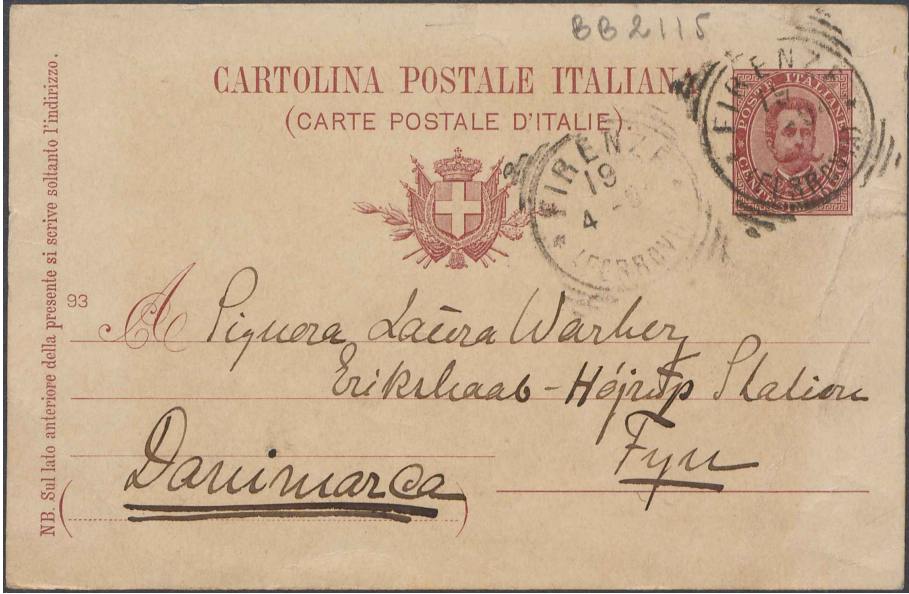 BB2115
CARTOLINA POSTALE ITALIANA
(CARTE POSTALE D'ITALIE).
POSTE ITALIANE
FIRENZE
19
FIRENZE
19
4
(FERROVIA)
NB. Sul lato anteriore della presente si scrive soltanto l'indirizzo.
93
A Signora Laura Warberg
Erikshaab - Højrup Station
Fyn
Danimarca